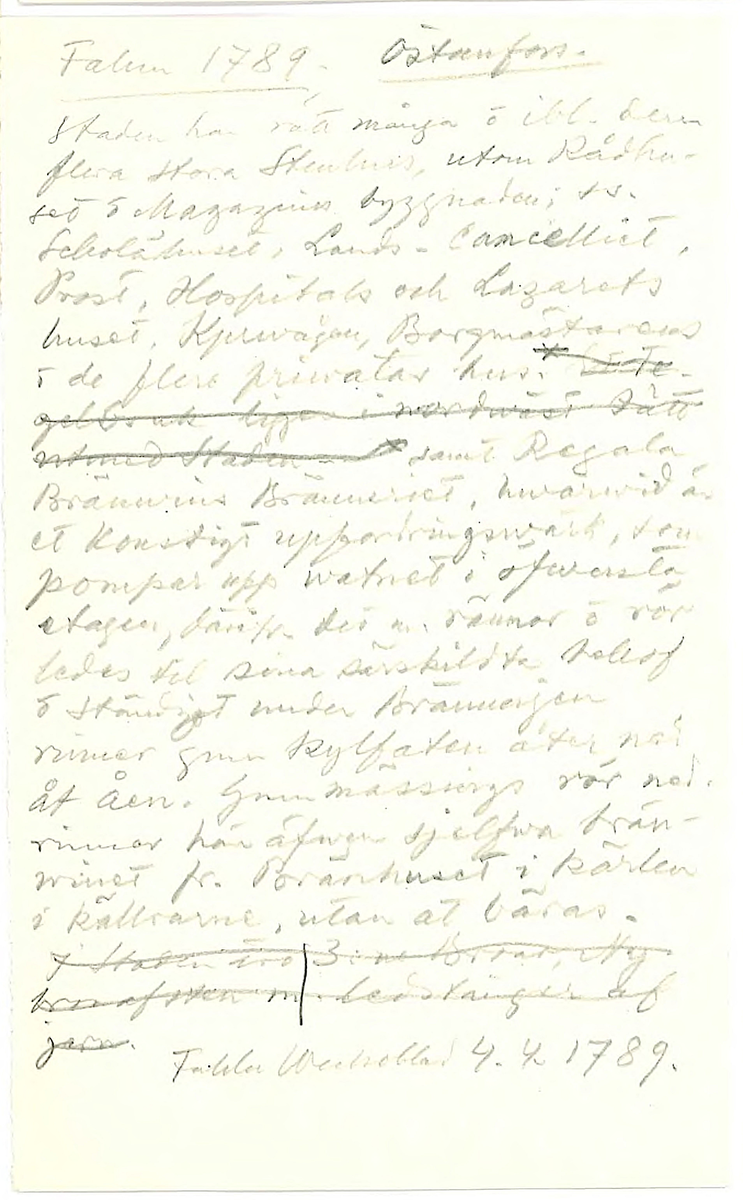 Falun 1789. Östanfors.
Staden har rätt många ö ibl. dem
flera stora Stenhus, utom Rådhu-
set ö Magazins byggnaden; ss.
Scholähuset, Lands-Cancelliet,
Prost, Hospitals och Lazarets
huset, Kyrwägen, Borgmästarens
i de flere privatas hus.
gelbruk ligger i nordwäst tätt
utmed Staden samt Regala
Bränwins Bränneriet, hwarwid är
et Konstigt uppfordringswärk, som
pompar upp watnet i öfwersta
etagen, därifr. det m. rännor ö rör
ledes til sina särskildta behof
ö ständigt under Bränningen
rinner gnm kylfaten åter ned
åt åen. Gnm mässings rör ned-
rinner här äfwen sjelfwa brän-
winet fr. Bränhuset i kärlen
i källrarne, utan at bäras.
I Staden äro 3:ne Broar, Ny
bron af sten m. ledstänger af
jern.
Fahlu Weckoblad 4.4 1789.